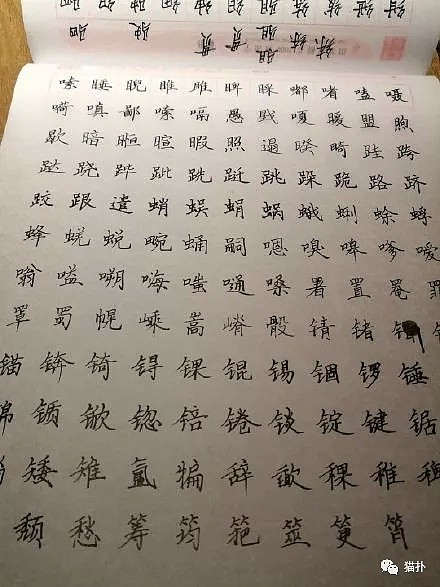 嗉 睡 睨 睢 雎 睥 睬 嘟 嗜 嗑 嗫
嗬 嗔 鄙 嗦 嗝 愚 戥 嗄 暖 盟 煦
歇 暗 暅 暄 暇 照 遢 暌 畸 跬 跨
跶 跷 跸 跐 跣 跹 跳 跺 跪 路 跻
跤 跟 遣 蛸 蜈 蜎 蜗 蛾 蜊 蜍 蜉
蜂 蜣 蜕 畹 蛹 嗣 嗯 嗅 嗥 嗲 嗳
嗡 嗌 嗍 嗨 嗤 嗵 嗓 署 置 罨 罪
罩 蜀 幌 嵊 嵩 嵴 骰 锖 锗
锚 锛 锜 锝 锞 锟 锡 锢 锣 锤
锦 锧 锨 锪 锫 锩 锬 锭 键 锯
矮 雉 氲 犏 辞 歃 稞 稚
颓 愁 筹 筠 筢 筮 筻 筲
猫扑